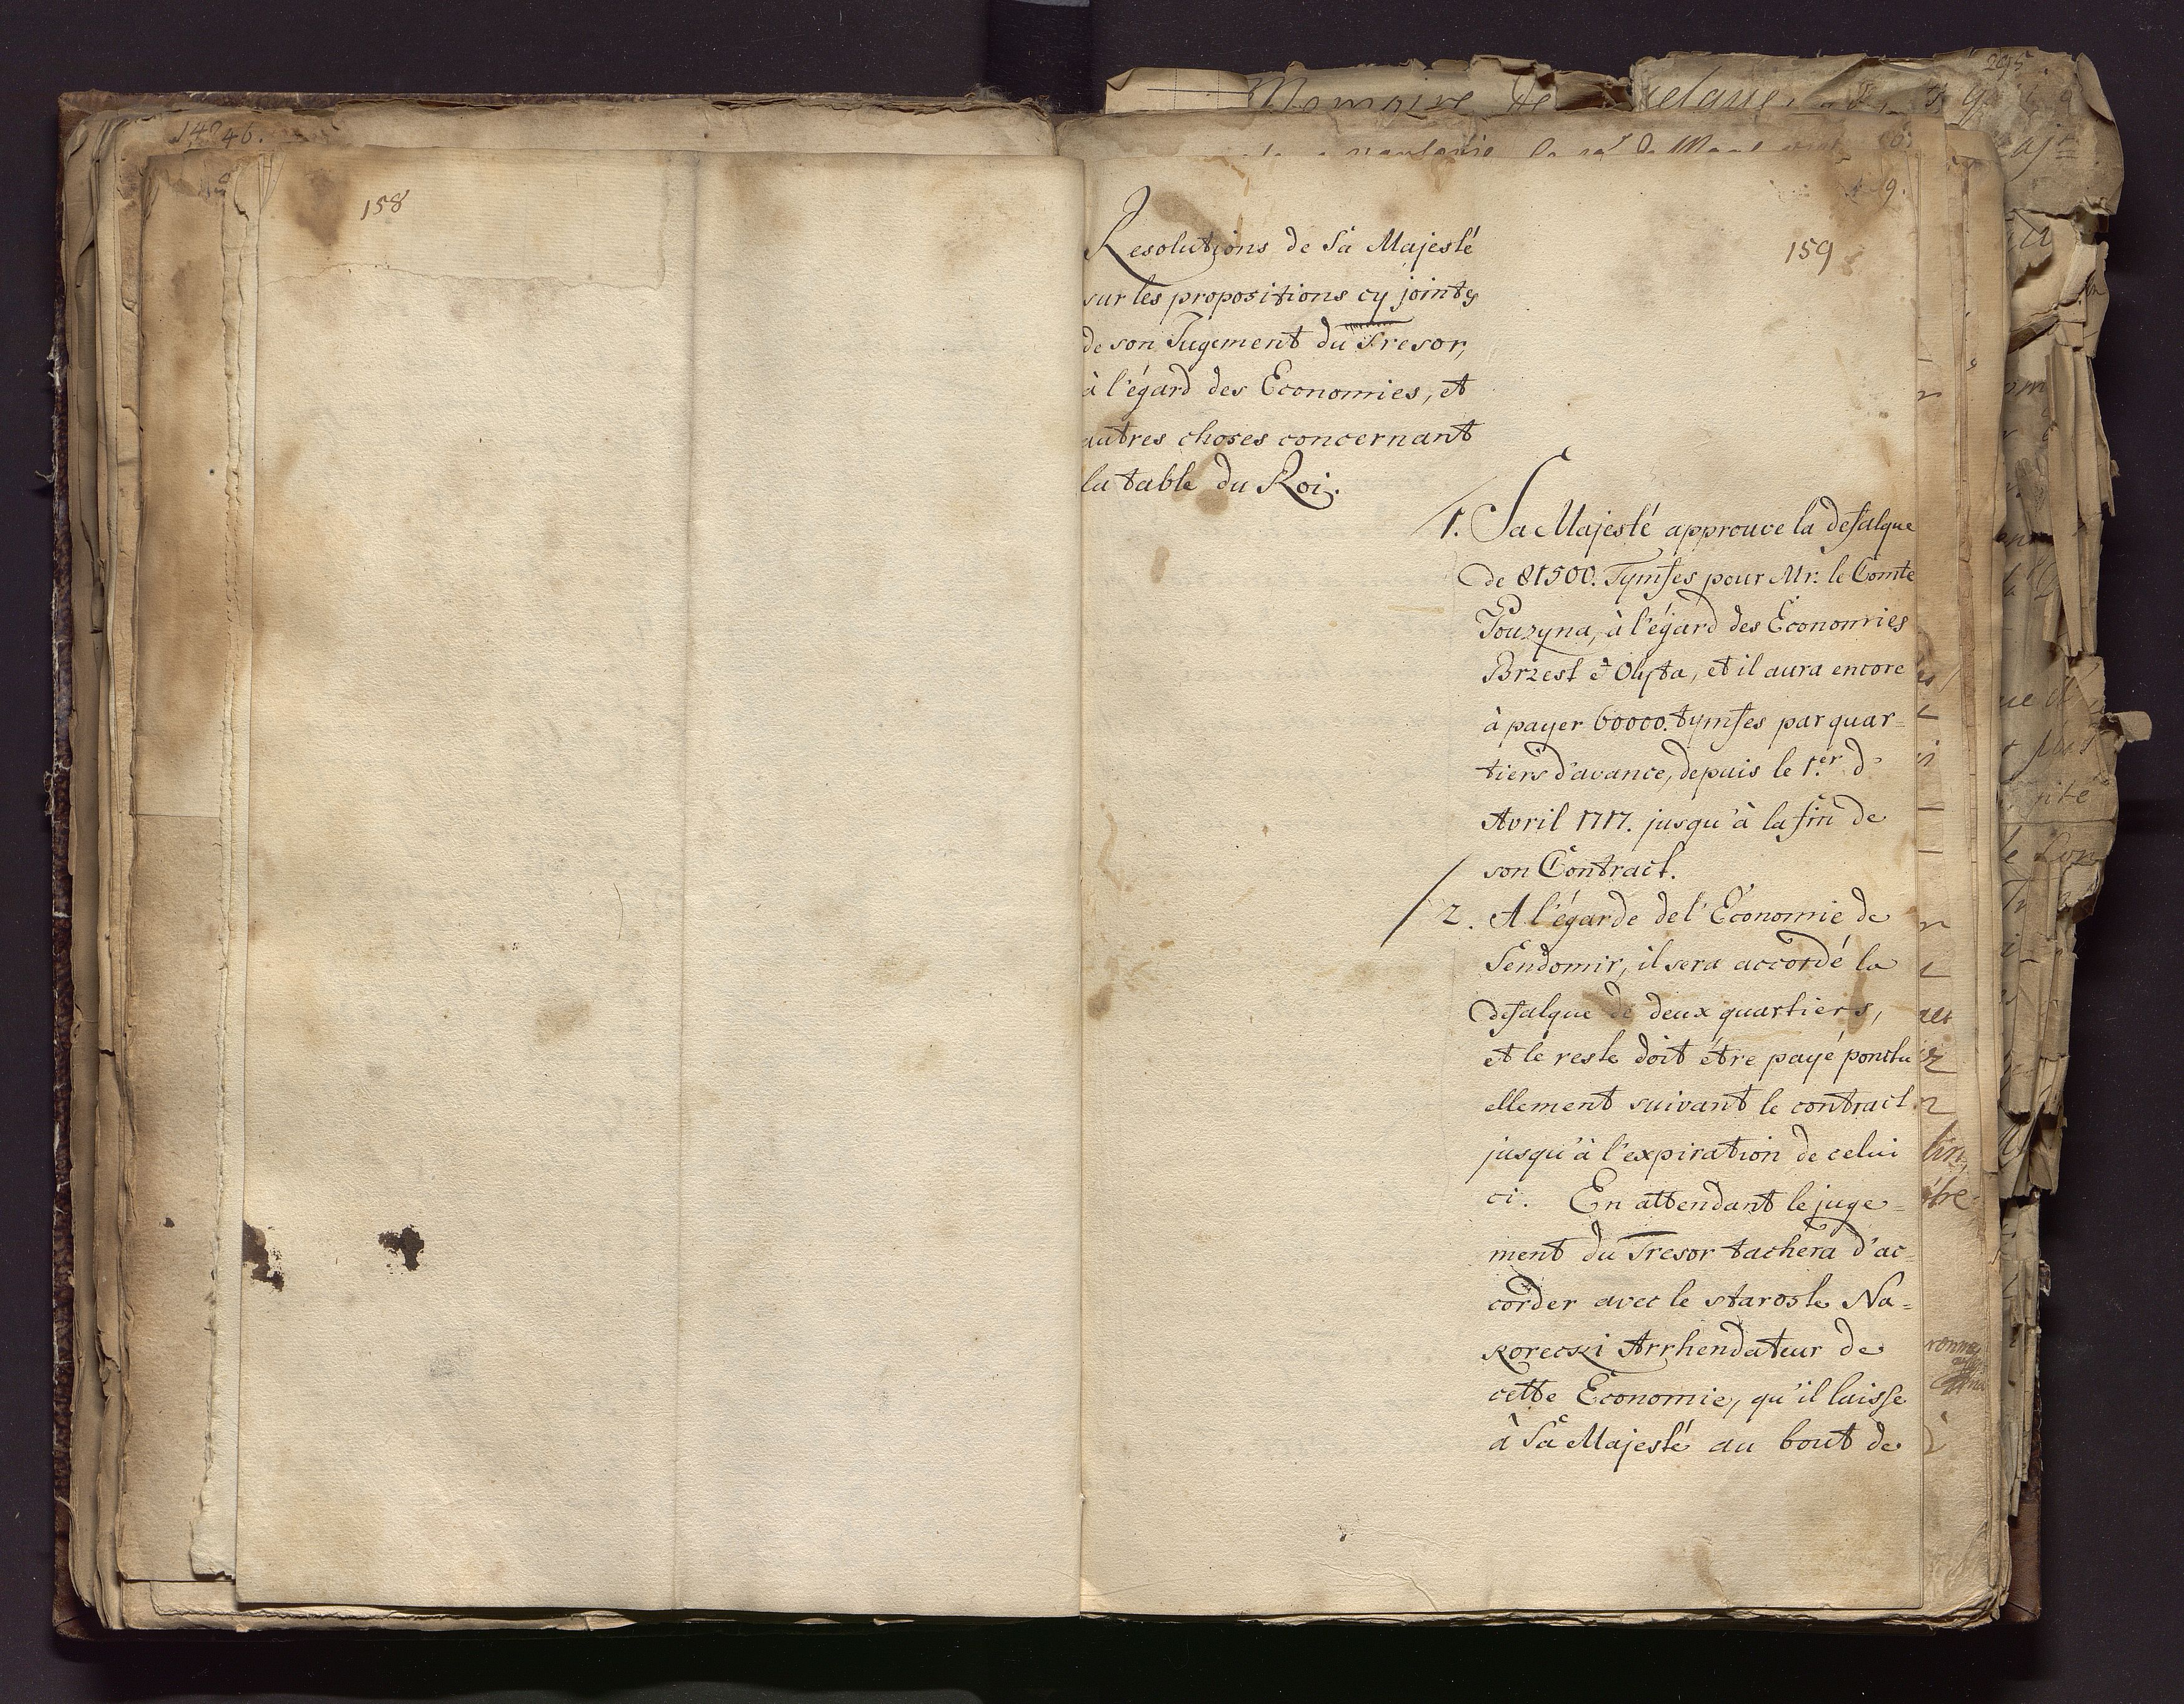 146.
158
159
Resolutions de Sa Majesté
sur les propositions cy jointes
de son Jugement du Tresor,
à l'égard des Economies, et
autres choses concernant
la table du Roi.
1. Sa Majesté approuve la defalque
de 81500. Tymfes pour Mr: le Comte
Pouzyna, à l'égard des Economies
Brzest et Olyta, et il aura encore
à payer 60000. tymfes par quar=
tiers d'avance, depuis le 1.er d'
Avril 1717. jusqu'à la fin de
son Contract.
2. A l'égarde de l'Economie de
Sendomir, il sera accordé la
defalque de deux quartiers,
et le reste doit étre payé ponctu
ellement suivant le contract
jusqu'à l'expiration de celui
ci. En attendant le juge=
ment du Tresor tachera d'ac=
corder avec le staroste Na=
korecki Arrhendateur de
cette Economie, qu'il laisse
à Sa Majesté au bout de